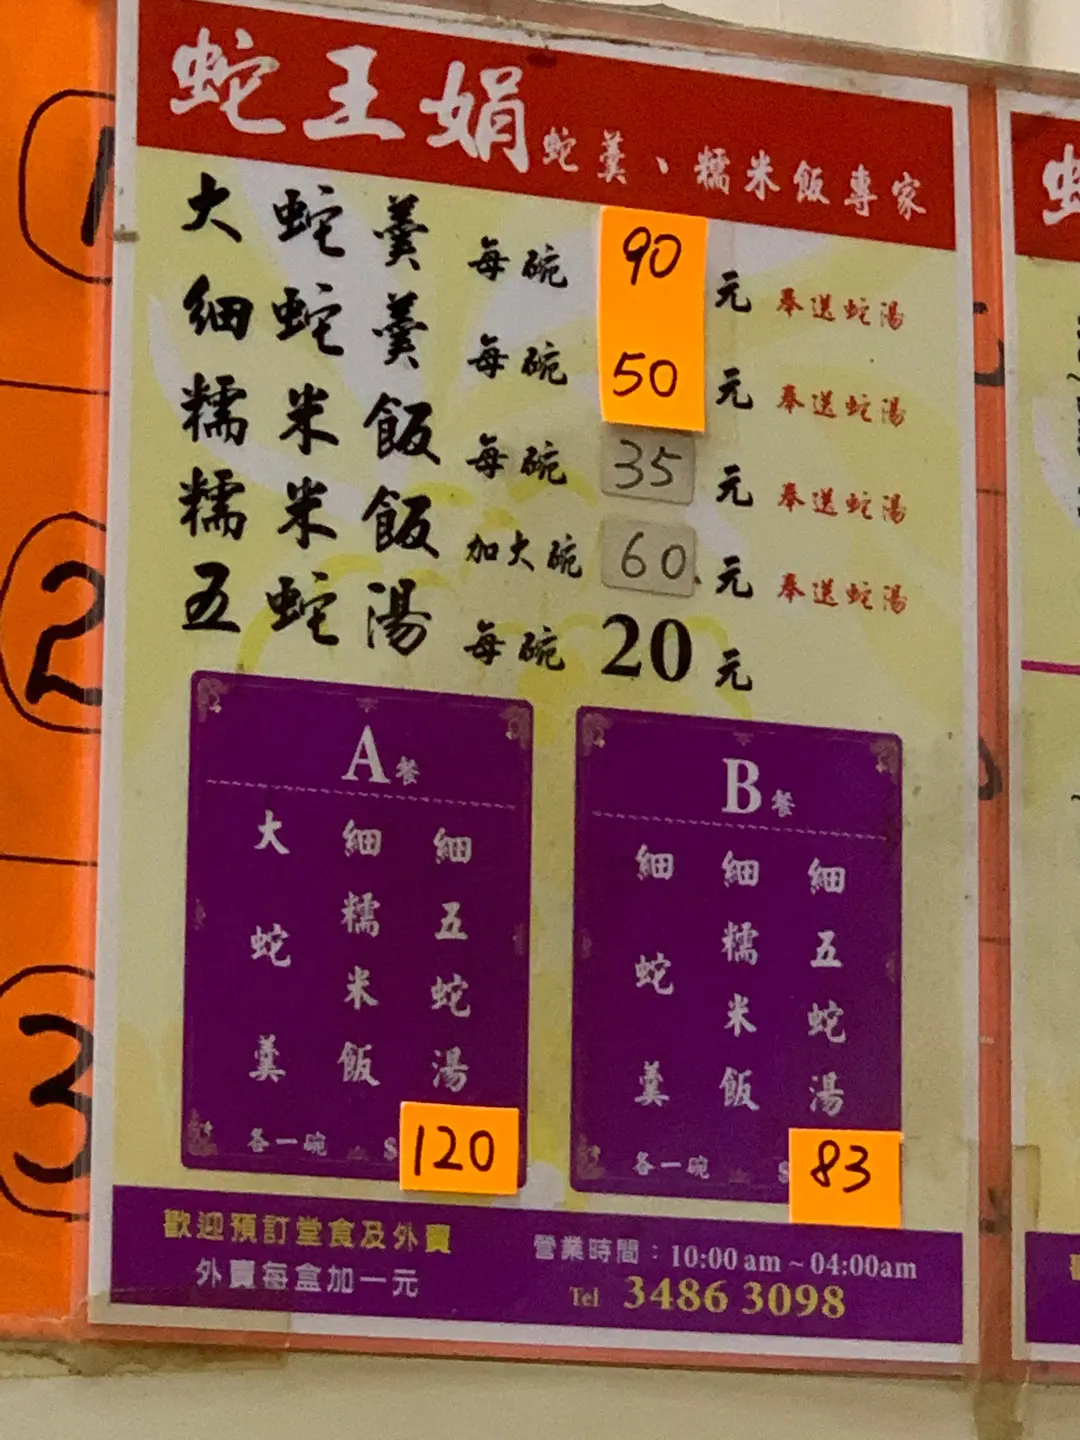 蛇王娟 蛇羹、糯米飯專家
大蛇羹 每碗 90 元 奉送蛇湯
細蛇羹 每碗 50 元 奉送蛇湯
糯米飯 每碗 35 元 奉送蛇湯
糯米飯 加大碗 60 元 奉送蛇湯
五蛇湯 每碗 20 元
A餐
大蛇羹
細糯米飯
細五蛇湯
各一碗 $ 120
B餐
細蛇羹
細糯米飯
細五蛇湯
各一碗 $ 83
歡迎預訂堂食及外賣
外賣每盒加一元
營業時間：10:00 am ~ 04:00am
Tel 3486 3098
1
2
3